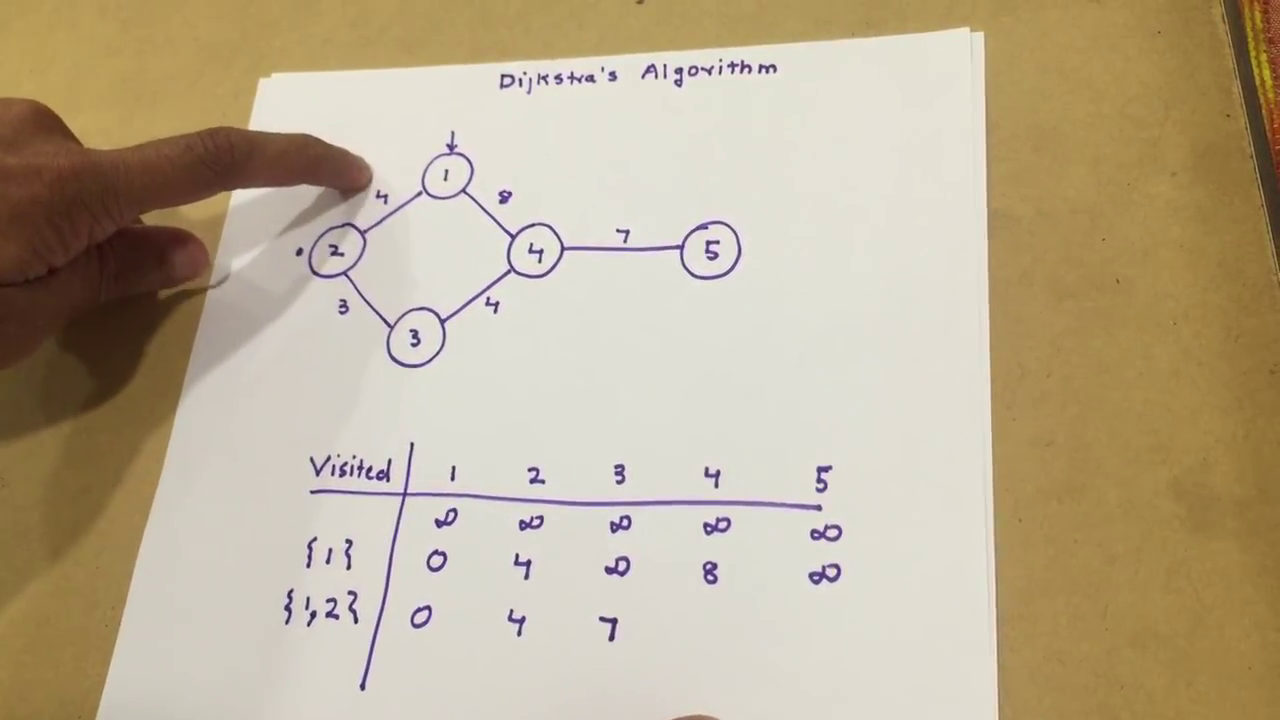 Dijkstra's Algorithm
↓
1
4 8
2 4 7 5
3 4
3
Visited 1 2 3 4 5
∞ ∞ ∞ ∞ ∞
{1} 0 4 ∞ 8 ∞
{1,2} 0 4 7